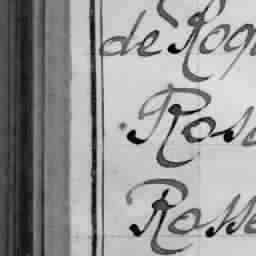 de Roqu
Rose
Rosse